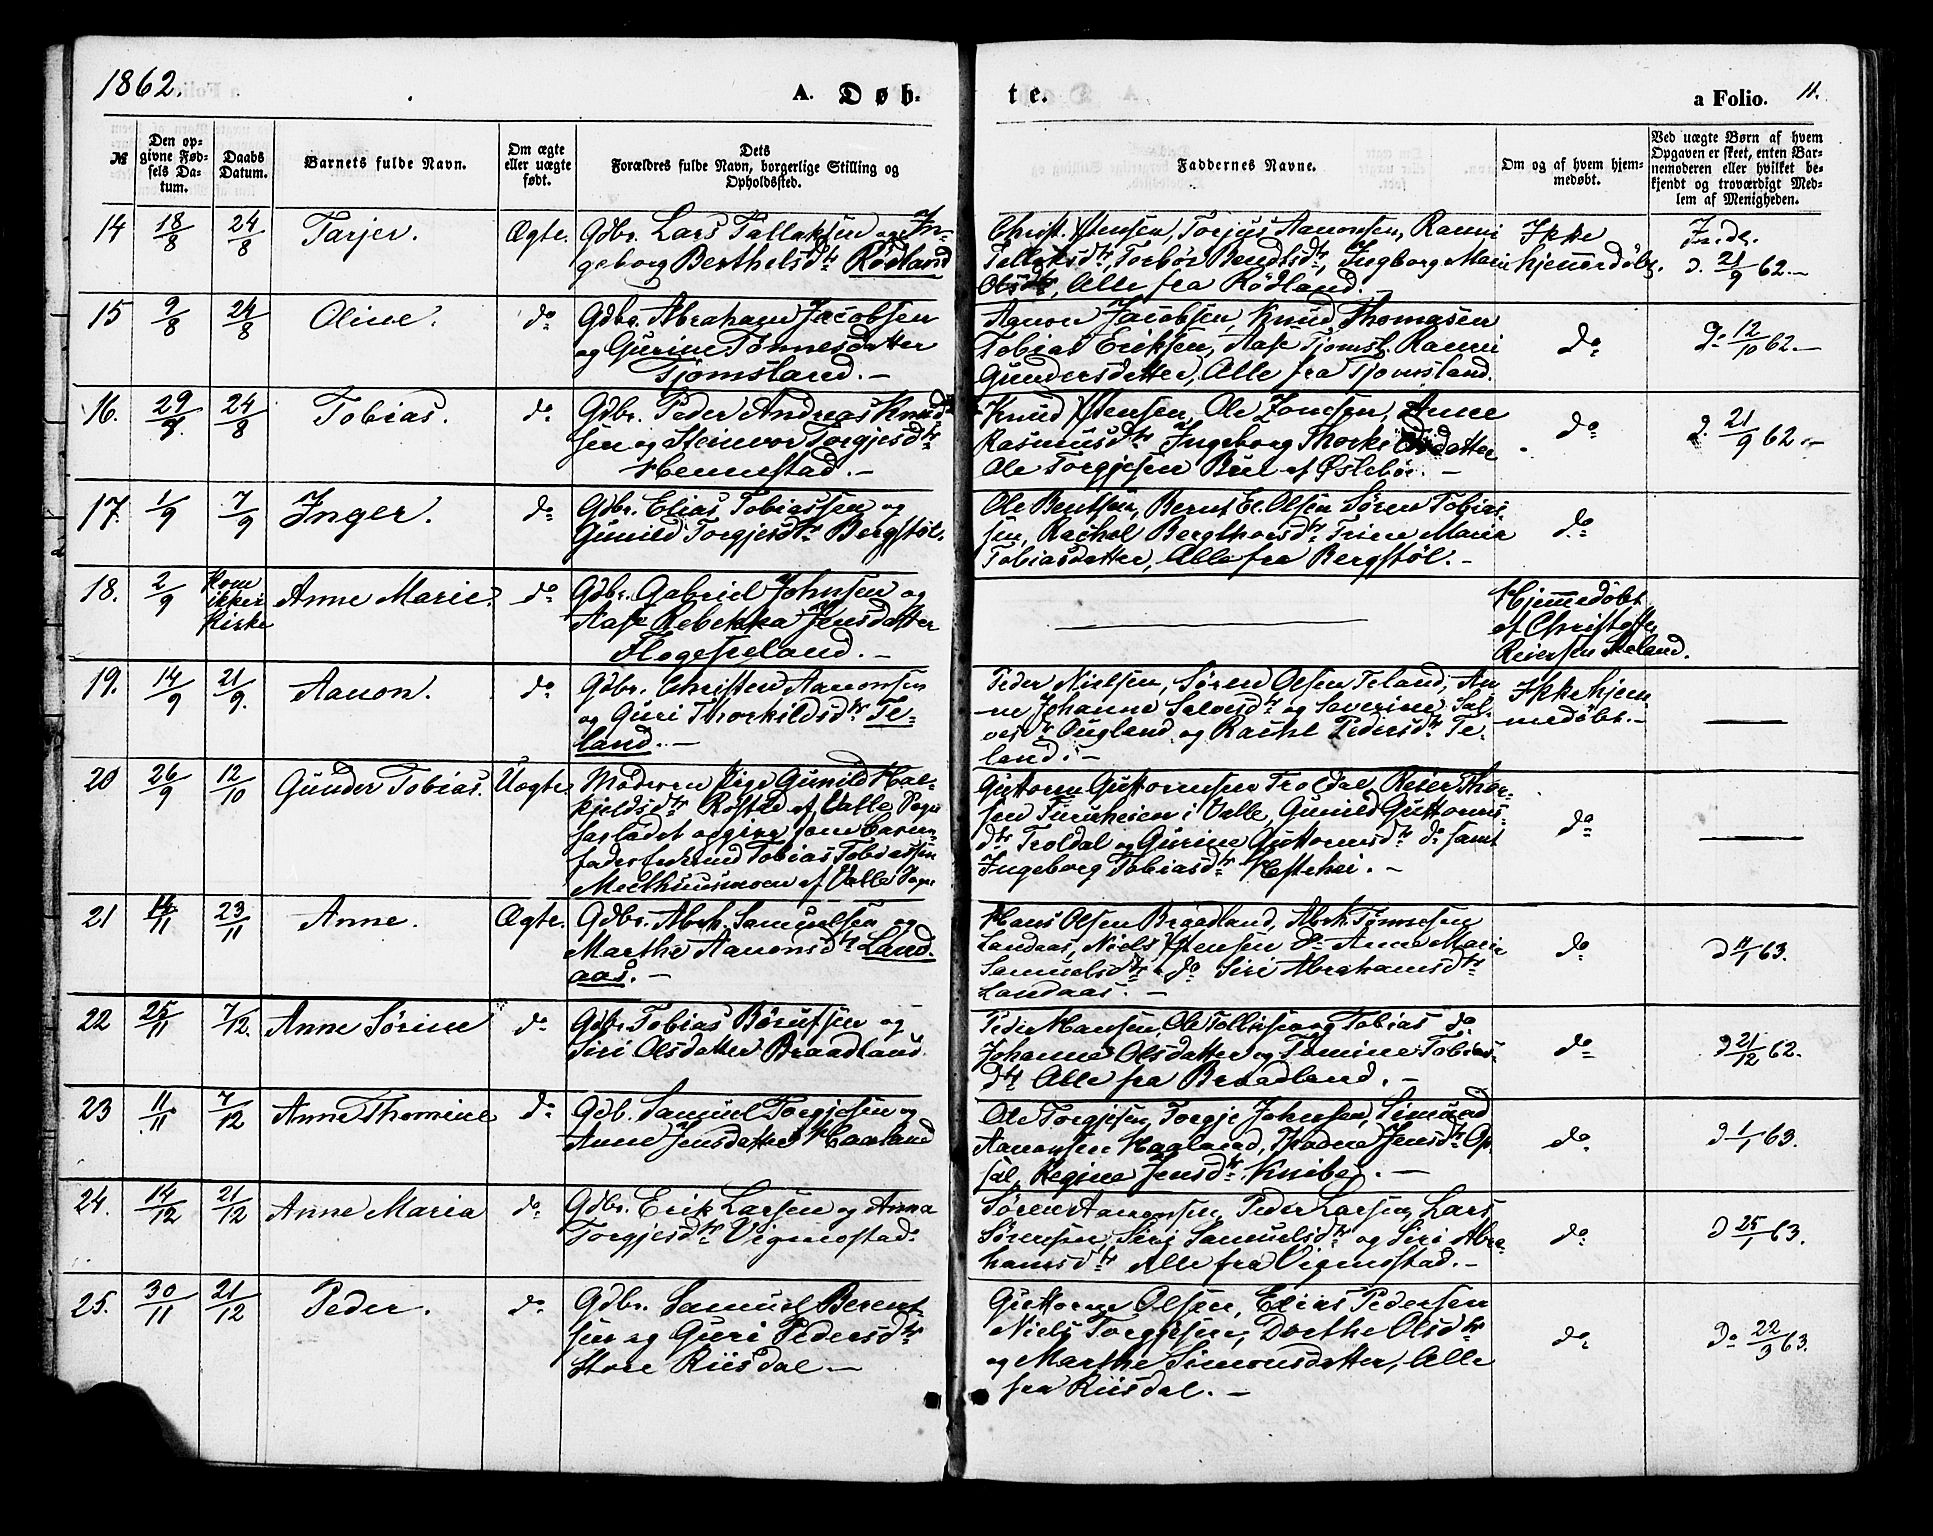 1862.
A. Døb-
te.
a Folio. 11.
№
Den op-
givne Fød-
sels Da-
tum.
Daabs
Datum.
Barnets fulde Navn.
Om ægte
eller uægte
født.
Dets
Forældres fulde Navn, borgerlige Stilling og
Opholdssted.
Faddernes Navne.
Om og af hvem hjem-
medøbt.
Ved uægte Børn af hvem
Opgaven er skeet, enten Bar-
nemoderen eller hvilket be-
kjendt og troværdigt Med-
lem af Menigheden.
14 18/8 24/8 Tarjer. Ægte.
Gdbr. Lars Tallaksen og In-
geborg Berthelsdtr Rødland
Christ. Jensen, Torjus Aanonsen, Ranni
Tallaksdtr, Torbør Bendtsdtr, Ingborg Marie
Olsdtr, Alle fra Rødland.
Ikke
hjemmedøbt.
D. 21/9 62.-
15 9/8 24/8 Oline. do
Gdbr. Abraham Jacobsen
og Gurine Tønnesdatter
Tjomsland.-
Aanon Jacobsen, Knud Thomasen
Tobias Eriksen, Aase Tjomsl. Ranni
Gundersdatter, Alle fra Tjomsland.
do
D. 12/10 62.-
16. 29/7 24/8 Tobias. do
Gdbr. Peder Andreas Knud-
sen og Steinvor Torgjesdtr
Hennestad.-
Knud Jensen, Ole Jonesen, Anne
Rasmusdtr Ingeborg Thorkelsdatter
Ole Torgjesen Bue af Øslebøe.-
do
D. 21/9 62.-
17. 1/9 7/9 Inger. do
Gdbr. Elias Tobiassen og
Gunild Torgjesdtr Bergstøl.
Ole Bentsen, Bernt El. Olsen Søren Tobias-
sen, Rachel Bergthorsdtr Trine Marie
Tobiasdatter, Alle fra Bergstøl.-
do
18. 2/9 Kom
ikke i
Kirke
Anne Marie. do
Gdbr. Gabriel Johnsen og
Aase Rebekka Jensdatter
Flogefieland.-
Hjemmedøbt
af Christoffer
Reiersen Skeland.
19. 14/9 21/9. Aanon. do
Gdbr. Christen Aanonsen
og Guri Thorkildsdtr Te-
land.-
Peder Nielsen, Søren Olsen Teland, An-
ne Johanne Salvesdtr og Severine Sal-
vesdtr Ougland og Rachel Pedersdtr Te-
land.-
Ikke hjem-
medøbt.-
20 26/9 12/10 Gunder Tobias. Uægte
Moderen Pige Gunild Hal-
kjeldsdtr Røstad af Valle Sogn
Faglødet opgivne som Barne-
fader Tobias Tobiassen
af Valle Sogn
Guttorm Guttormsen Troldal, Reier Thor-
sen Furuheien i Valle, Gunild Guttorms-
dtr Troldal og Gurine Guttormsdtr do samt
Ingeborg Tobiasdtr Hestehei.-
do
21 14/11 23/11 Anne. Ægte.
Gdbr. Abrh. Samuelsen og
Marthe Aanonsdtr Land-
aas.-
Hans Olsen Braadland, Abrh. Tønnesen
Landaas, Niels Jensen do Anne Marie
Samuelsdtr do Siri Abrahamsdtr
Landaas.-
do
D 11/1 63.
22 25/11 7/12. Anne Sørine do
Gdbr Tobias Børufsen og
Siri Olsdatter Braadland.
Peder Hansen, Ole Tollissen og Tobias do
Johanne Olsdatter og Tomine Tobias-
dtr Alle fra Braadland.-
do
D 21/12 62.
23 11/11 7/12 Anne Thomine do
Gdb. Samuel Torgjesen og
Anne Jensdatter Haaland
Ole Torgjesen, Torgje Johnsen, Simund
Aanonsen Haaland, Jensdtr Op-
sal, Regine Jensdtr Knibe.-
do
D 1/1 63.
24. 14/12 21/12 Anne Maria do
Gdbr. Erik Larsen og Anna
Torgjesdtr Vigmostad.
Søren Aanonsen, Peder Larsen, Lars
Sørensen, Siri Samuelsdtr og Siri Abra-
hamsdtr Alle fra Vigmostad.-
do
D 25/1 63.
25. 30/11 21/12 Peder. do
Gdbr. Samuel Berent-
sen og Guri Pedersdtr
Store Riisdal.-
Guttorm Olsen, Elias Pedersen
Niels Torgjesen, Dorthe Olsdtr
og Marthe Simonsdatter, Alle
fra Riisdal.-
do
Do 22/3 63.